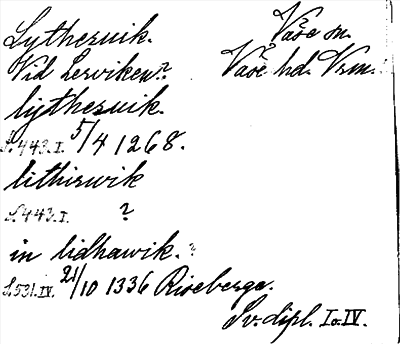 Lythesuik. Väse sn.
Vid Lerviken? Väse hd. Vrm.
lythesuik.
S. 443. I. 5/4 1268.
lithiswik
S. 443. I. ?
in lidhawik. ?
S. 531. IV. 21/10 1336 Riseberga.
Sv. dipl. I o. IV.